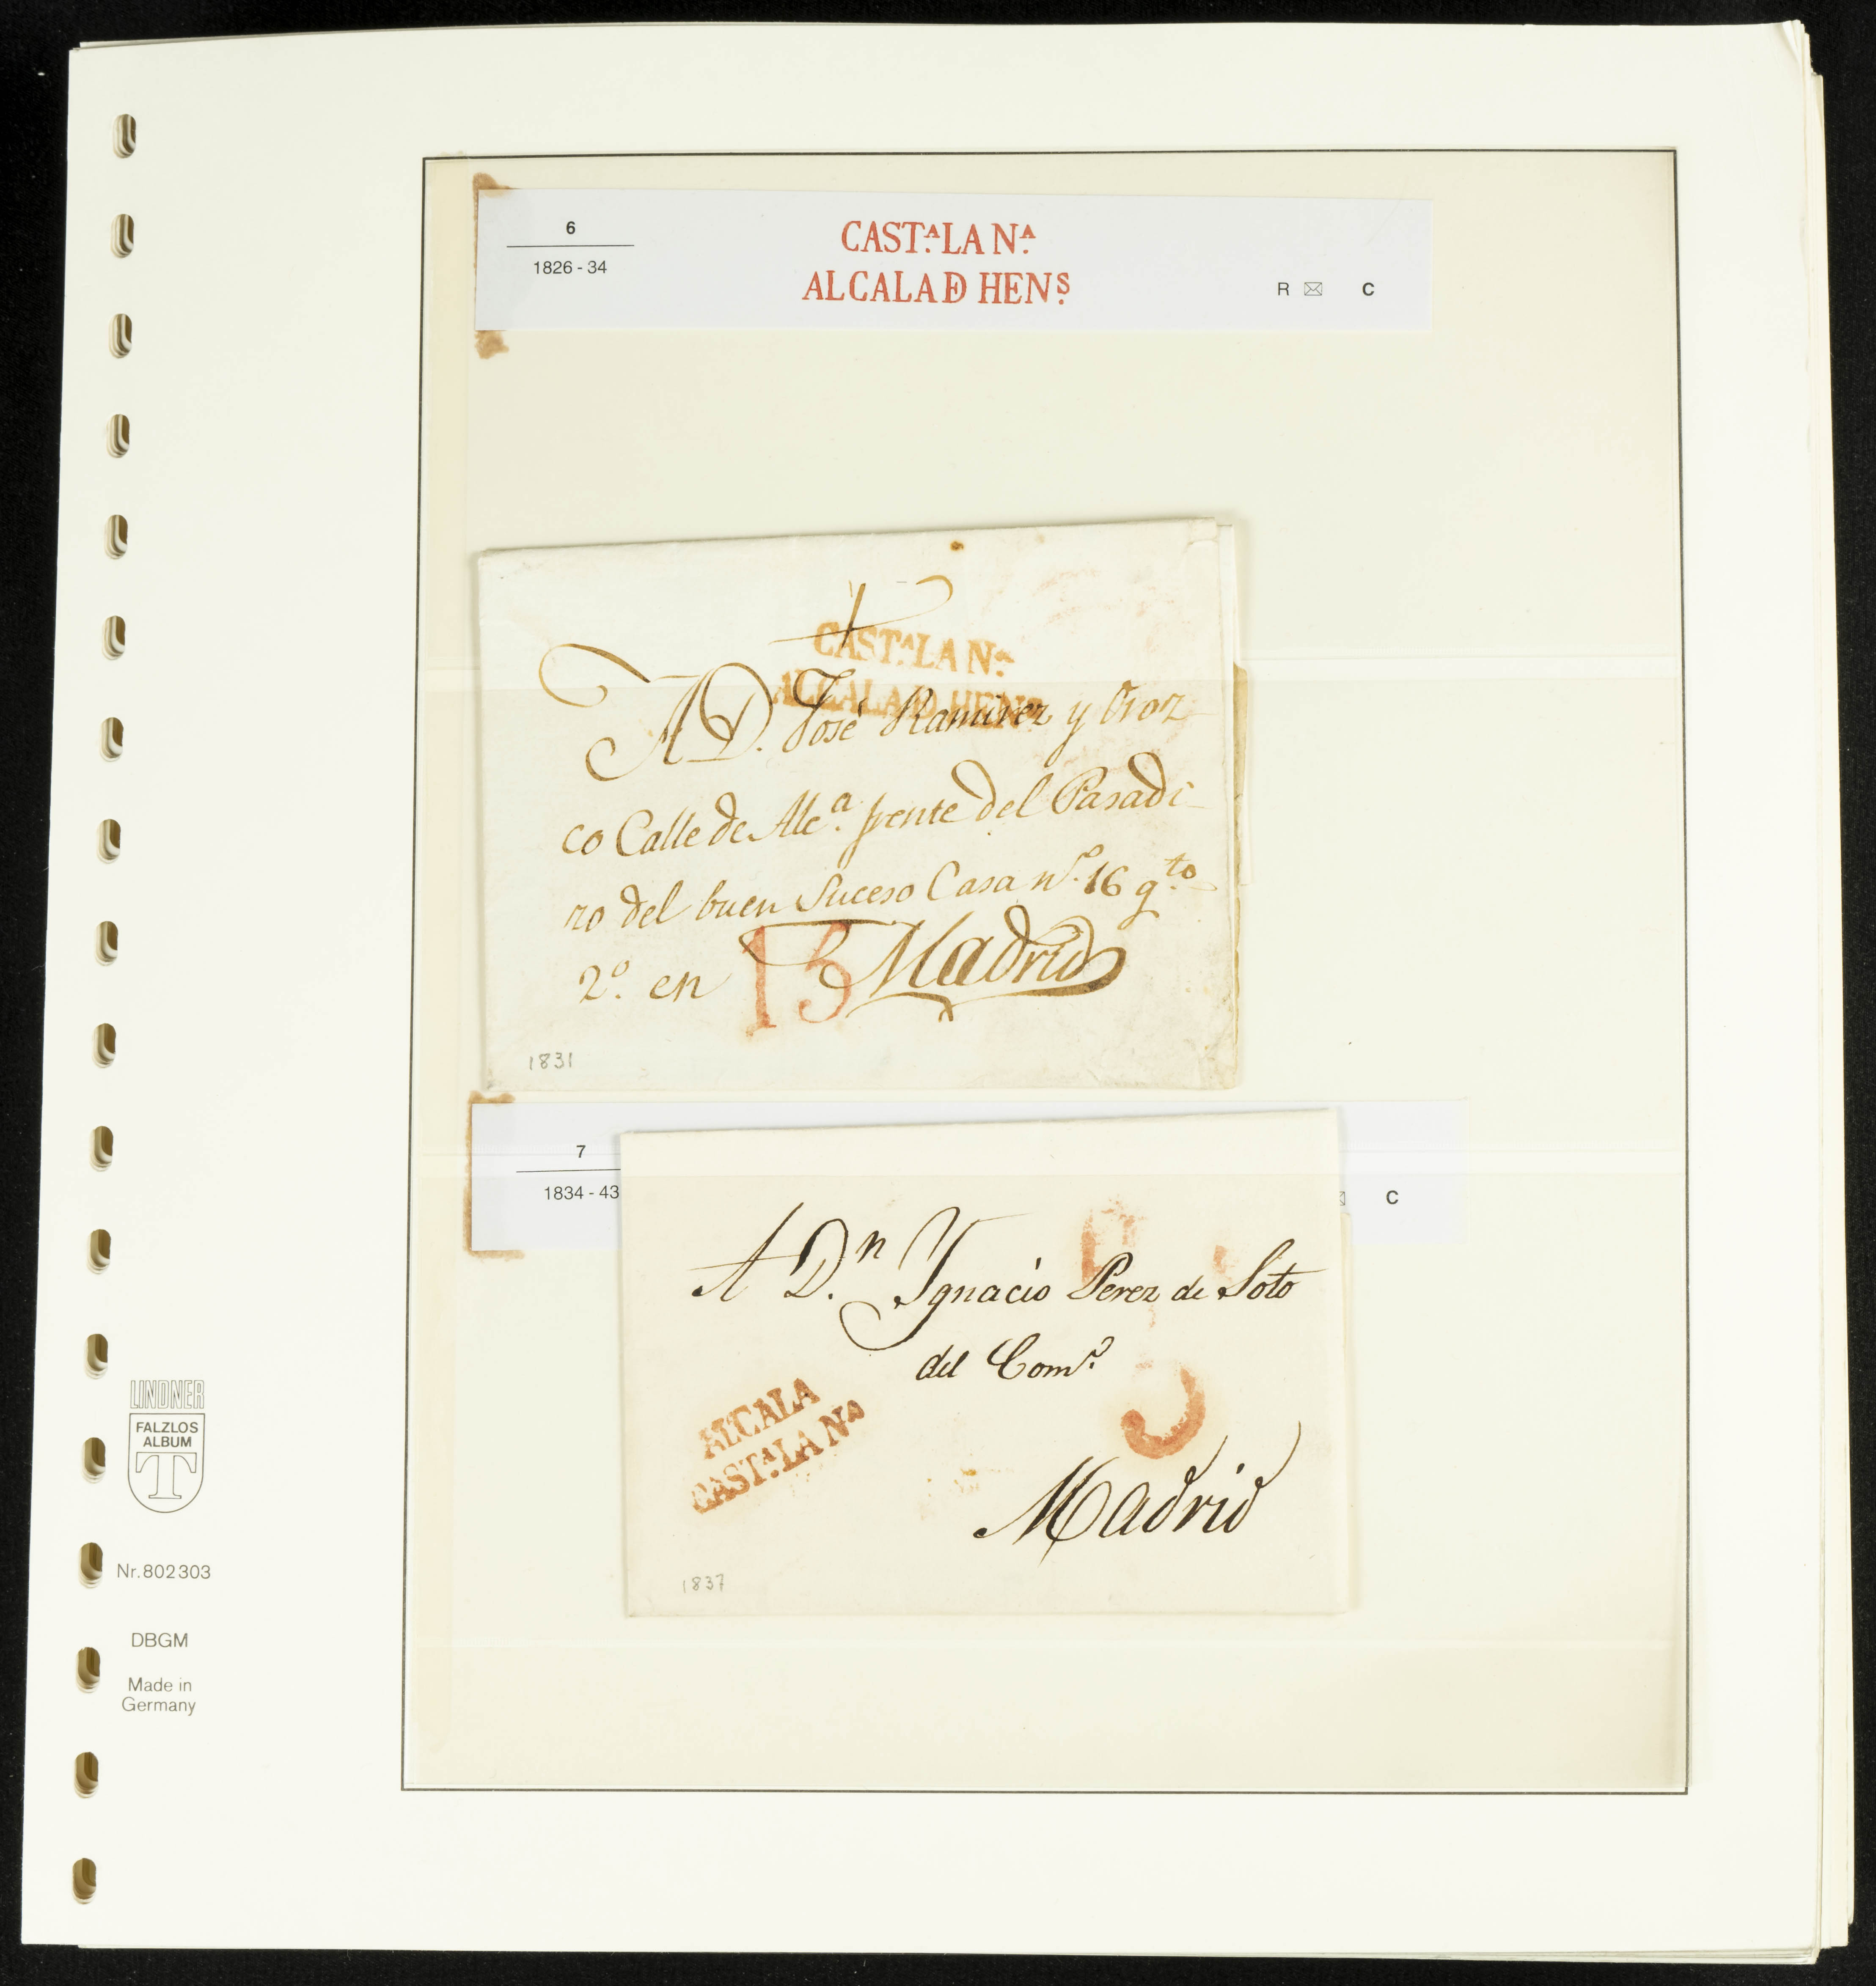 6
1826 - 34
CAST.ᴬ LA N.ᴬ
ALCALA DE HEN.ˢ
R ✉ C
CAST.ᴬ LA N.ᵃ
ALCALA DE HEN.ˢ
A D. José Ramirez y Oroz
co Calle de Alc.ª frente del Pasadi
zo del buen Suceso Casa n.º 16 q.ᵗᵒ
2.º en Madrid
13
1831
7
1834 - 43
C
A D.ⁿ Ygnacio Perez de Soto
del Com.º
ALCALA
CAST.ᴬ LA N.ᵃ
Madrid
1837
LINDNER
FALZLOS
ALBUM
T
Nr. 802303
DBGM
Made in
Germany